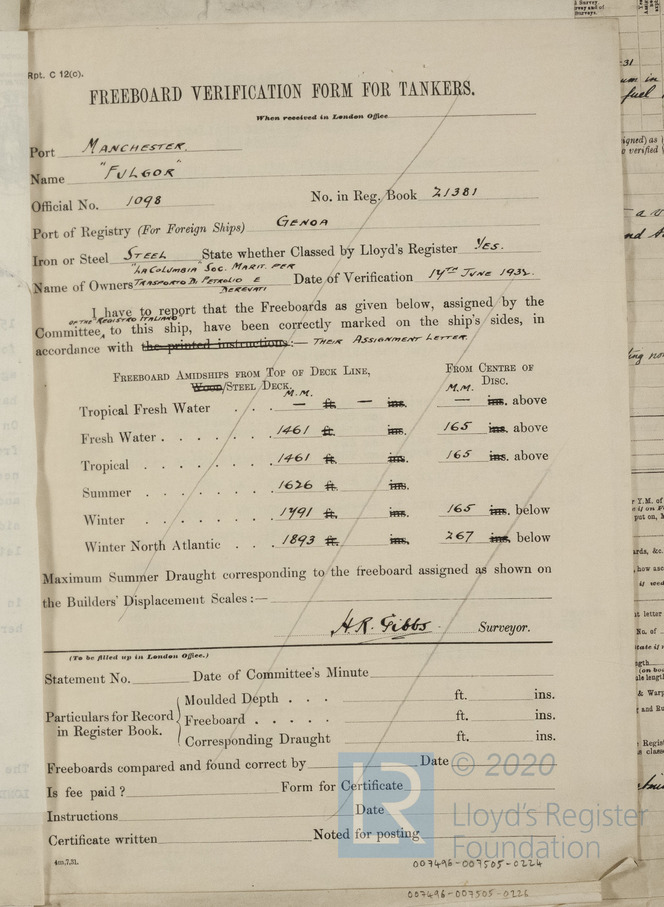 Rpt. C 12(c).
FREEBOARD VERIFICATION FORM FOR TANKERS.
When received in London Office
Port MANCHESTER.
Name "FULGOR"
Official No. 1098 No. in Reg. Book 21381
Port of Registry (For Foreign Ships) GENOA
Iron or Steel STEEL State whether Classed by Lloyd's Register YES.
"LA COLUMBIA" SOC. MARIT. PER
Name of Owners TRASPORTO DI PETROLIO E Date of Verification 14TH JUNE 1932.
DEREVATI
I have to report that the Freeboards as given below, assigned by the
OF THE REGISTRO ITALIANO
Committee, to this ship, have been correctly marked on the ship's sides, in
accordance with the printed instructions:— THEIR ASSIGNMENT LETTER.
FREEBOARD AMIDSHIPS FROM TOP OF DECK LINE, FROM CENTRE OF
WOOD/STEEL DECK. DISC.
M.M. M.M.
Tropical Fresh Water . . . — ft. — ins. — ins. above
Fresh Water . . . . . . 1461 ft. ins. 165 ins. above
Tropical . . . . . . . 1461 ft. ins. 165 ins. above
Summer . . . . . . . 1626 ft. ins.
Winter . . . . . . . 1791 ft. ins. 165 ins. below
Winter North Atlantic . . . 1893 ft. ins. 267 ins. below
Maximum Summer Draught corresponding to the freeboard assigned as shown on
the Builders' Displacement Scales:—
H.R. Gibbs. Surveyor.
(To be filled up in London Office.)
Statement No. Date of Committee's Minute
Particulars for Record in Register Book.
Moulded Depth . . . ft. ins.
Freeboard . . . . . ft. ins.
Corresponding Draught ft. ins.
Freeboards compared and found correct by Date
Is fee paid? Form for Certificate
Instructions Date
Certificate written Noted for posting
4m,7,31.
LR
© 2020
Lloyd's Register
Foundation
007496-007505-0224
007496-007505-0226